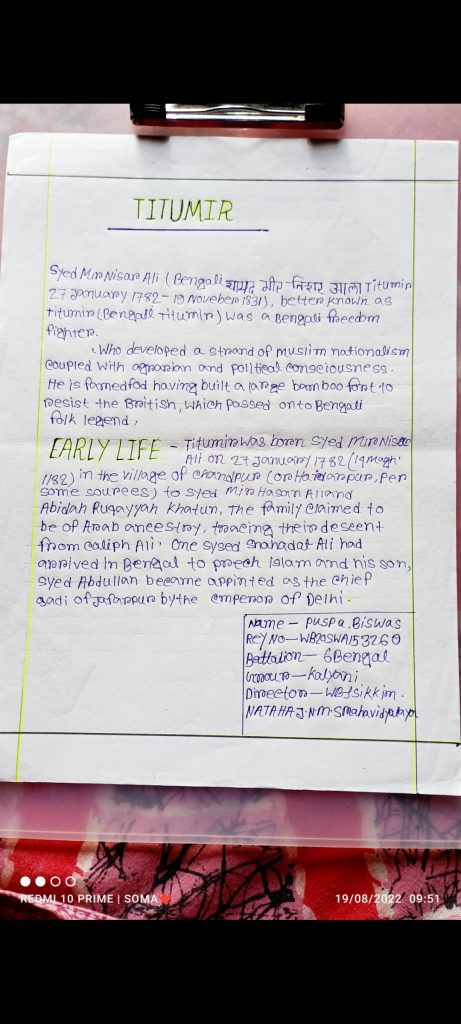 TITUMIR
Syed Mir Nisar Ali (Bengali शायद मीर निशार आला Titumir
27 January 1782 - 19 Noveber 1831), better known as
Titumir (Bengali Titumir) was a Bengali freedom
fighter.
Who developed a strand of muslim nationalism
coupled with agrarian and political consciousness.
He is famedfod having built a large bamboo fort to
resist the British, which passed onto Bengali
folk legend,
EARLY LIFE - Titumir was born Syed Mir Nisar
Ali on 27 January 1782 (14 Magh
1182) in the village of chandpur (or Haidarpur, per
some sources) to Syed Mir Hasan Ali and
Abidah Ruqayyah khatun, The family claimed to
be of Arab ancestry, tracing their descent
from caliph Ali. One sysed Shahadat Ali had
arrived In Bengal to preech Islam and his son,
Syed Abdullan became appinted as the chief
qadi of jafarpur by the emperor of Delhi.
Name - Puspa Biswas
REY No - WB20SWA153260
Battalion - 6 Bengal
Group - Kalyani
Director - WB & Sikkim.
NATAHAJ.N.M.S Mahavidyalaya
REDMI 10 PRIME | SOMA❤️
19/08/2022 09:51